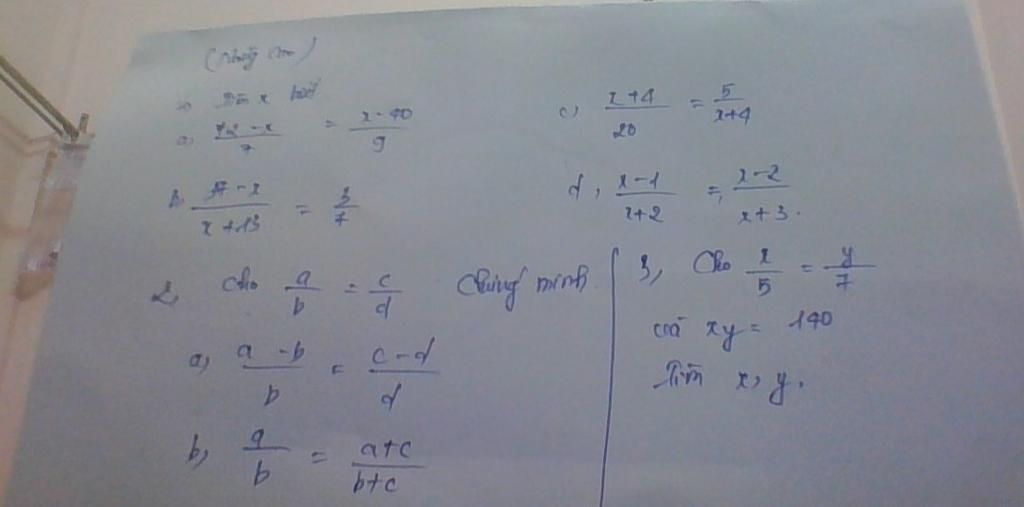 Tìm x biết
a) (72-x)/7 = (x-40)/9
b, (37-x)/(x+13) = 3/7
c) (x+4)/20 = 5/(x+4)
d, (x-1)/(x+2) = (x-2)/(x+3).
2, Cho a/b = c/d Chứng minh
a, (a-b)/b = (c-d)/d
b, a/b = (a+c)/(b+c)
3, Cho x/5 = y/7
và xy = 140
Tìm x, y.